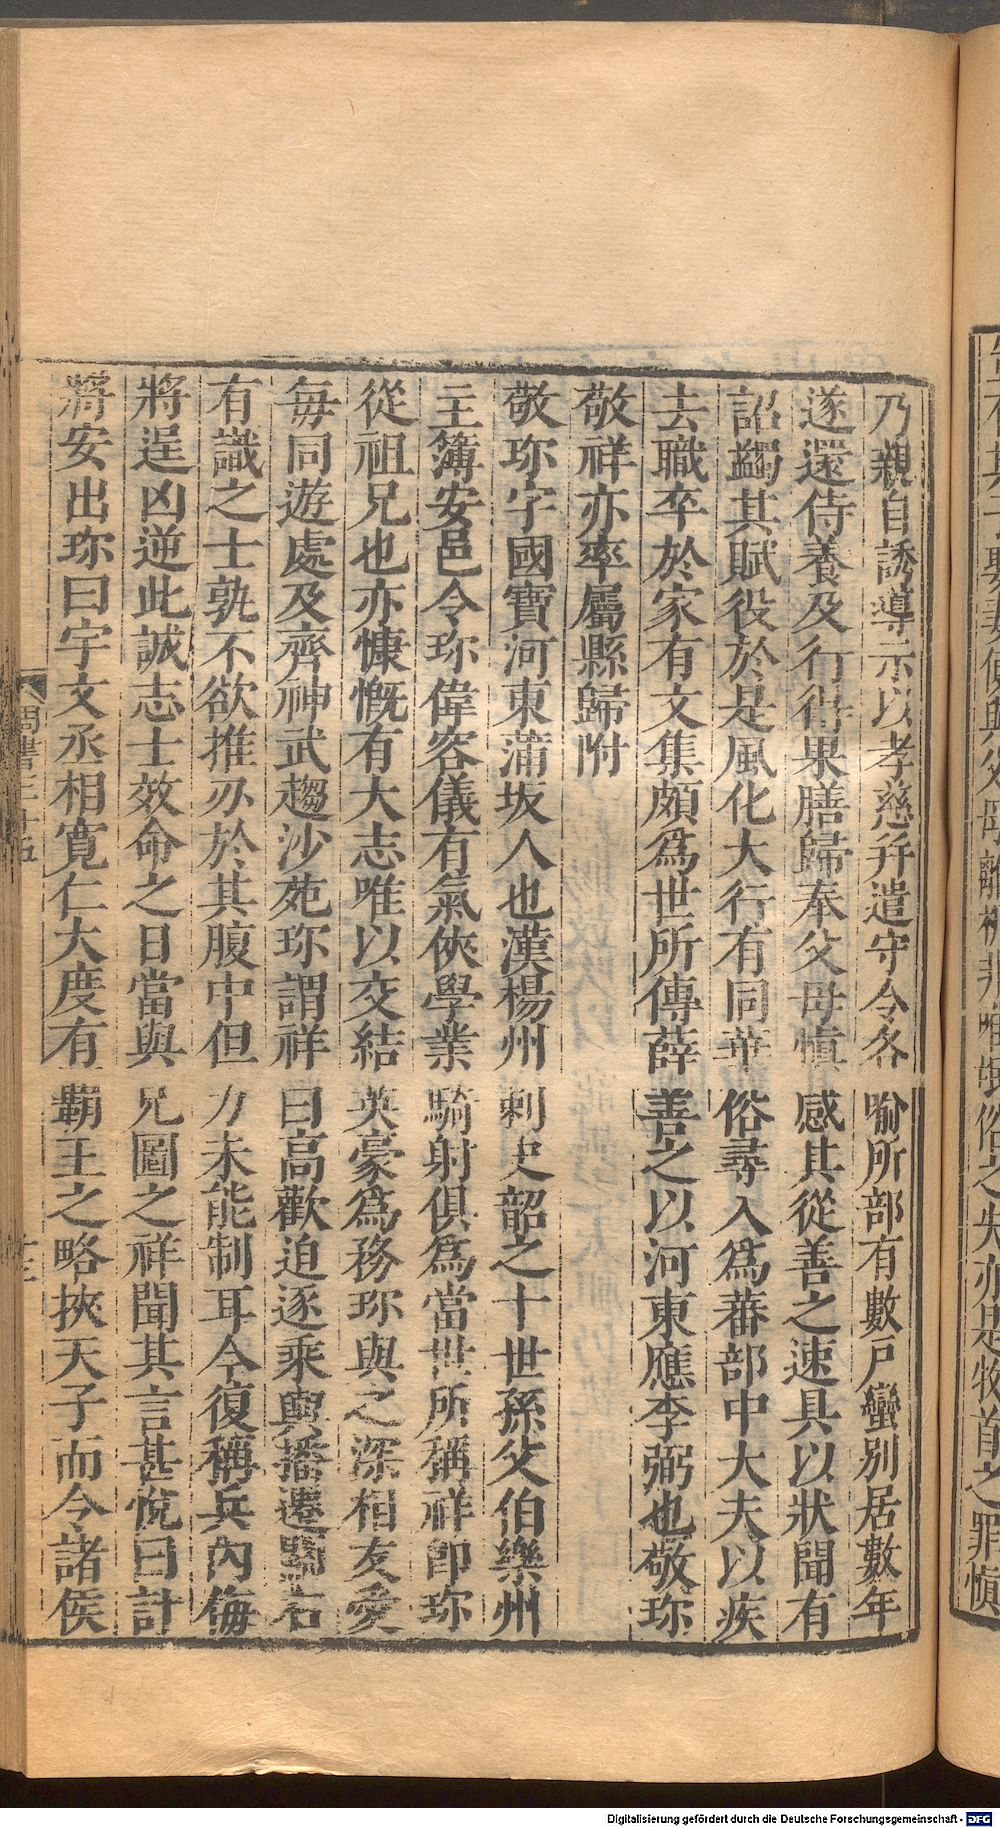 乃親自誘導示以孝慈并遣守令各喻所部有數戶蠻別居數年
遂還侍養及行得果膳歸奉父母慎感其從善之速具以狀聞有
詔蠲其賦役於是風化大行有同華俗尋入為蕃部中大夫以疾
去職卒於家有文集頗為世所傳薛善之以河東應李弼也敬珍
敬祥亦率屬縣歸附
敬珎字國寶河東蒲坂人也漢楊州刺史韶之十世孫父伯樂州
主簿安邑令珎偉容儀有氣俠學業騎射俱為當世所稱祥即珎
從祖兄也亦慷慨有大志唯以交結英豪為務珎與之深相友愛
每同遊處及齊神武趨沙苑珎謂祥曰高歡迫逐乘輿播遷關右
有識之士孰不欲推刃於其腹中但力未能制耳今復稱兵內侮
將逞凶逆此誠志士效命之日當與兄圖之祥聞其言甚悅曰計
將安出珎曰宇文丞相寬仁大度有霸王之略挾天子而令諸侯
周書三十五
十三
Digitalisierung gefördert durch die Deutsche Forschungsgemeinschaft - DFG